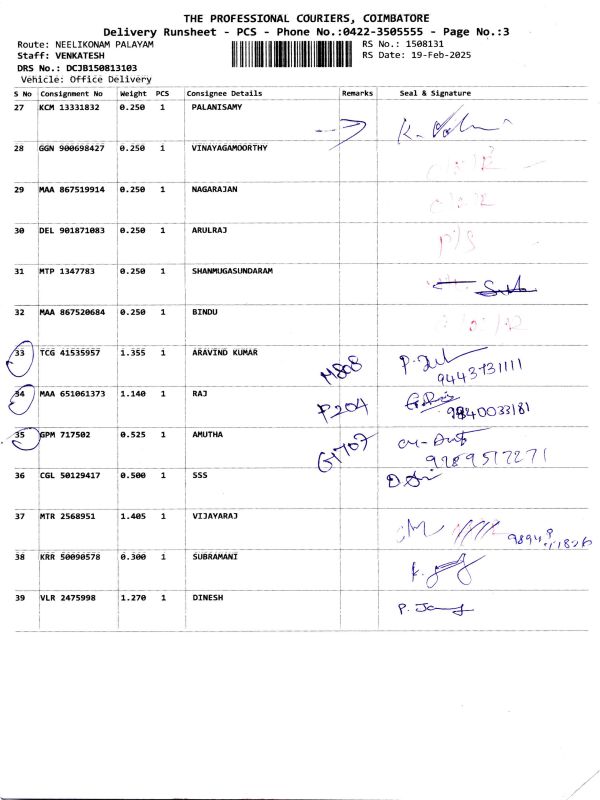 THE PROFESSIONAL COURIERS, COIMBATORE
Delivery Runsheet - PCS - Phone No.:0422-3505555 - Page No.:3
Route: NEELIKONAM PALAYAM
RS No.: 1508131
Staff: VENKATESH
RS Date: 19-Feb-2025
DRS No.: DCJB150813103
Vehicle: Office Delivery
S No Consignment No Weight PCS Consignee Details Remarks Seal & Signature
27 KCM 13331832 0.250 1 PALANISAMY
28 GGN 900698427 0.250 1 VINAYAGAMOORTHY
29 MAA 867519914 0.250 1 NAGARAJAN
30 DEL 901871083 0.250 1 ARULRAJ
31 MTP 1347783 0.250 1 SHANMUGASUNDARAM
32 MAA 867520684 0.250 1 BINDU
33 TCG 41535957 1.355 1 ARAVIND KUMAR M808
34 MAA 651061373 1.140 1 RAJ P204
9840033181
35 GPM 717502 0.525 1 AMUTHA G1707
9789517271
36 CGL 50129417 0.500 1 SSS
37 MTR 2568951 1.405 1 VIJAYARAJ
38 KRR 50090578 0.300 1 SUBRAMANI
39 VLR 2475998 1.270 1 DINESH